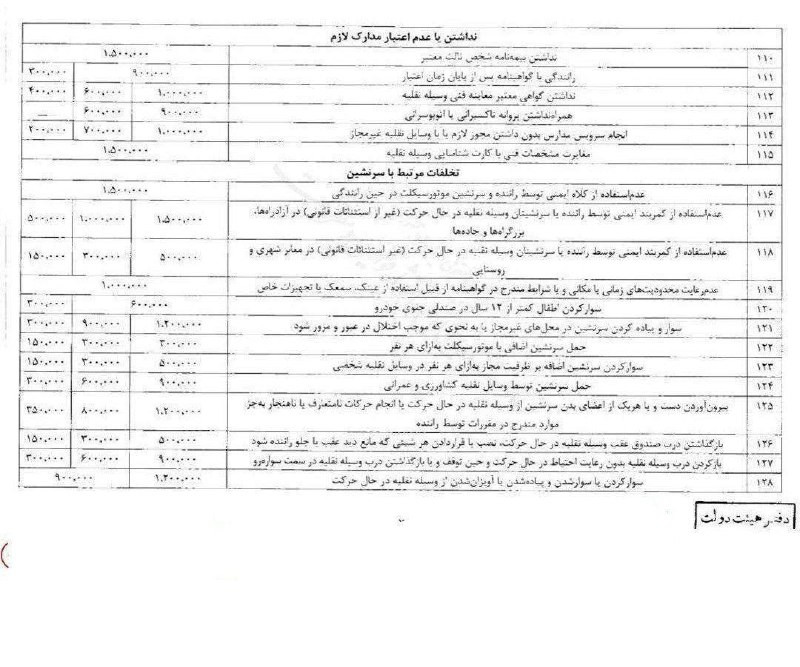 نداشتن یا عدم اعتبار مدارک لازم
۱۱۰ نداشتن بیمه‌نامه شخص ثالث معتبر ۱،۵۰۰،۰۰۰
۱۱۱ رانندگی با گواهینامه پس از پایان زمان اعتبار ۹۰۰،۰۰۰ ۳۰۰،۰۰۰
۱۱۲ نداشتن گواهی معتبر معاینه فنی وسیله نقلیه ۱،۰۰۰،۰۰۰ ۶۰۰،۰۰۰ ۴۰۰،۰۰۰
۱۱۳ همراه‌نداشتن پروانه تاکسیرانی یا اتوبوسرانی ۹۰۰،۰۰۰ ۶۰۰،۰۰۰ —
۱۱۴ انجام سرویس مدارس بدون داشتن مجوز لازم یا با وسایل نقلیه غیرمجاز ۱،۰۰۰،۰۰۰ ۷۰۰،۰۰۰ ۲۰۰،۰۰۰
۱۱۵ مغایرت مشخصات فنی با کارت شناسایی وسیله نقلیه ۱،۵۰۰،۰۰۰
تخلفات مرتبط با سرنشین
۱۱۶ عدم‌استفاده از کلاه ایمنی توسط راننده و سرنشین موتورسیکلت در حین رانندگی ۱،۵۰۰،۰۰۰
۱۱۷ عدم‌استفاده از کمربند ایمنی توسط راننده یا سرنشینان وسیله نقلیه در حال حرکت (غیر از استثنائات قانونی) در آزادراه‌ها، ۱،۵۰۰،۰۰۰ ۱،۰۰۰،۰۰۰ ۵۰۰،۰۰۰
بزرگراه‌ها و جاده‌ها
۱۱۸ عدم‌استفاده از کمربند ایمنی توسط راننده یا سرنشینان وسیله نقلیه در حال حرکت (غیر استثنائات قانونی) در معابر شهری و ۵۰۰،۰۰۰ ۳۰۰،۰۰۰ ۱۵۰،۰۰۰
روستایی
۱۱۹ عدم‌رعایت محدودیت‌های زمانی یا مکانی و یا شرایط مندرج در گواهینامه از قبیل استفاده از عینک، سمعک یا تجهیزات خاص ۱،۰۰۰،۰۰۰
۱۲۰ سوارکردن اطفال کمتر از ۱۲ سال در صندلی جلوی خودرو ۶۰۰،۰۰۰ ۳۰۰،۰۰۰
۱۲۱ سوار و پیاده کردن سرنشین در محل‌های غیرمجاز یا به نحوی که موجب اختلال در عبور و مرور شود ۱،۲۰۰،۰۰۰ ۹۰۰،۰۰۰ ۳۰۰،۰۰۰
۱۲۲ حمل سرنشین اضافی با موتورسیکلت به‌ازای هر نفر ۳۰۰،۰۰۰ ۳۰۰،۰۰۰ ۱۵۰،۰۰۰
۱۲۳ سوارکردن سرنشین اضافه بر ظرفیت مجاز به‌ازای هر نفر در وسایل نقلیه شخصی ۵۰۰،۰۰۰ ۳۰۰،۰۰۰ ۱۵۰،۰۰۰
۱۲۴ حمل سرنشین توسط وسایل نقلیه کشاورزی و عمرانی ۹۰۰،۰۰۰ ۶۰۰،۰۰۰ ۳۰۰،۰۰۰
۱۲۵ بیرون‌آوردن دست و یا هریک از اعضای بدن سرنشین از وسیله نقلیه در حال حرکت یا انجام حرکات نامتعارف یا ناهنجار به‌جز ۱،۲۰۰،۰۰۰ ۸۰۰،۰۰۰ ۳۵۰،۰۰۰
موارد مندرج در مقررات توسط راننده
۱۲۶ بازگذاشتن درب صندوق عقب وسیله نقلیه در حال حرکت، نصب یا قراردادن هر شیئی که مانع دید عقب یا جلو راننده شود ۵۰۰،۰۰۰ ۳۰۰،۰۰۰ ۱۵۰،۰۰۰
۱۲۷ بازکردن درب وسیله نقلیه بدون رعایت احتیاط در حال حرکت و حین توقف و یا بازگذاشتن درب وسیله نقلیه در سمت سواره‌رو ۹۰۰،۰۰۰ ۶۰۰،۰۰۰ ۳۰۰،۰۰۰
۱۲۸ سوارکردن یا سوارشدن و پیاده‌شدن یا آویزان‌شدن از وسیله نقلیه در حال حرکت ۱،۲۰۰،۰۰۰ ۹۰۰،۰۰۰
دفتر هیئت دولت